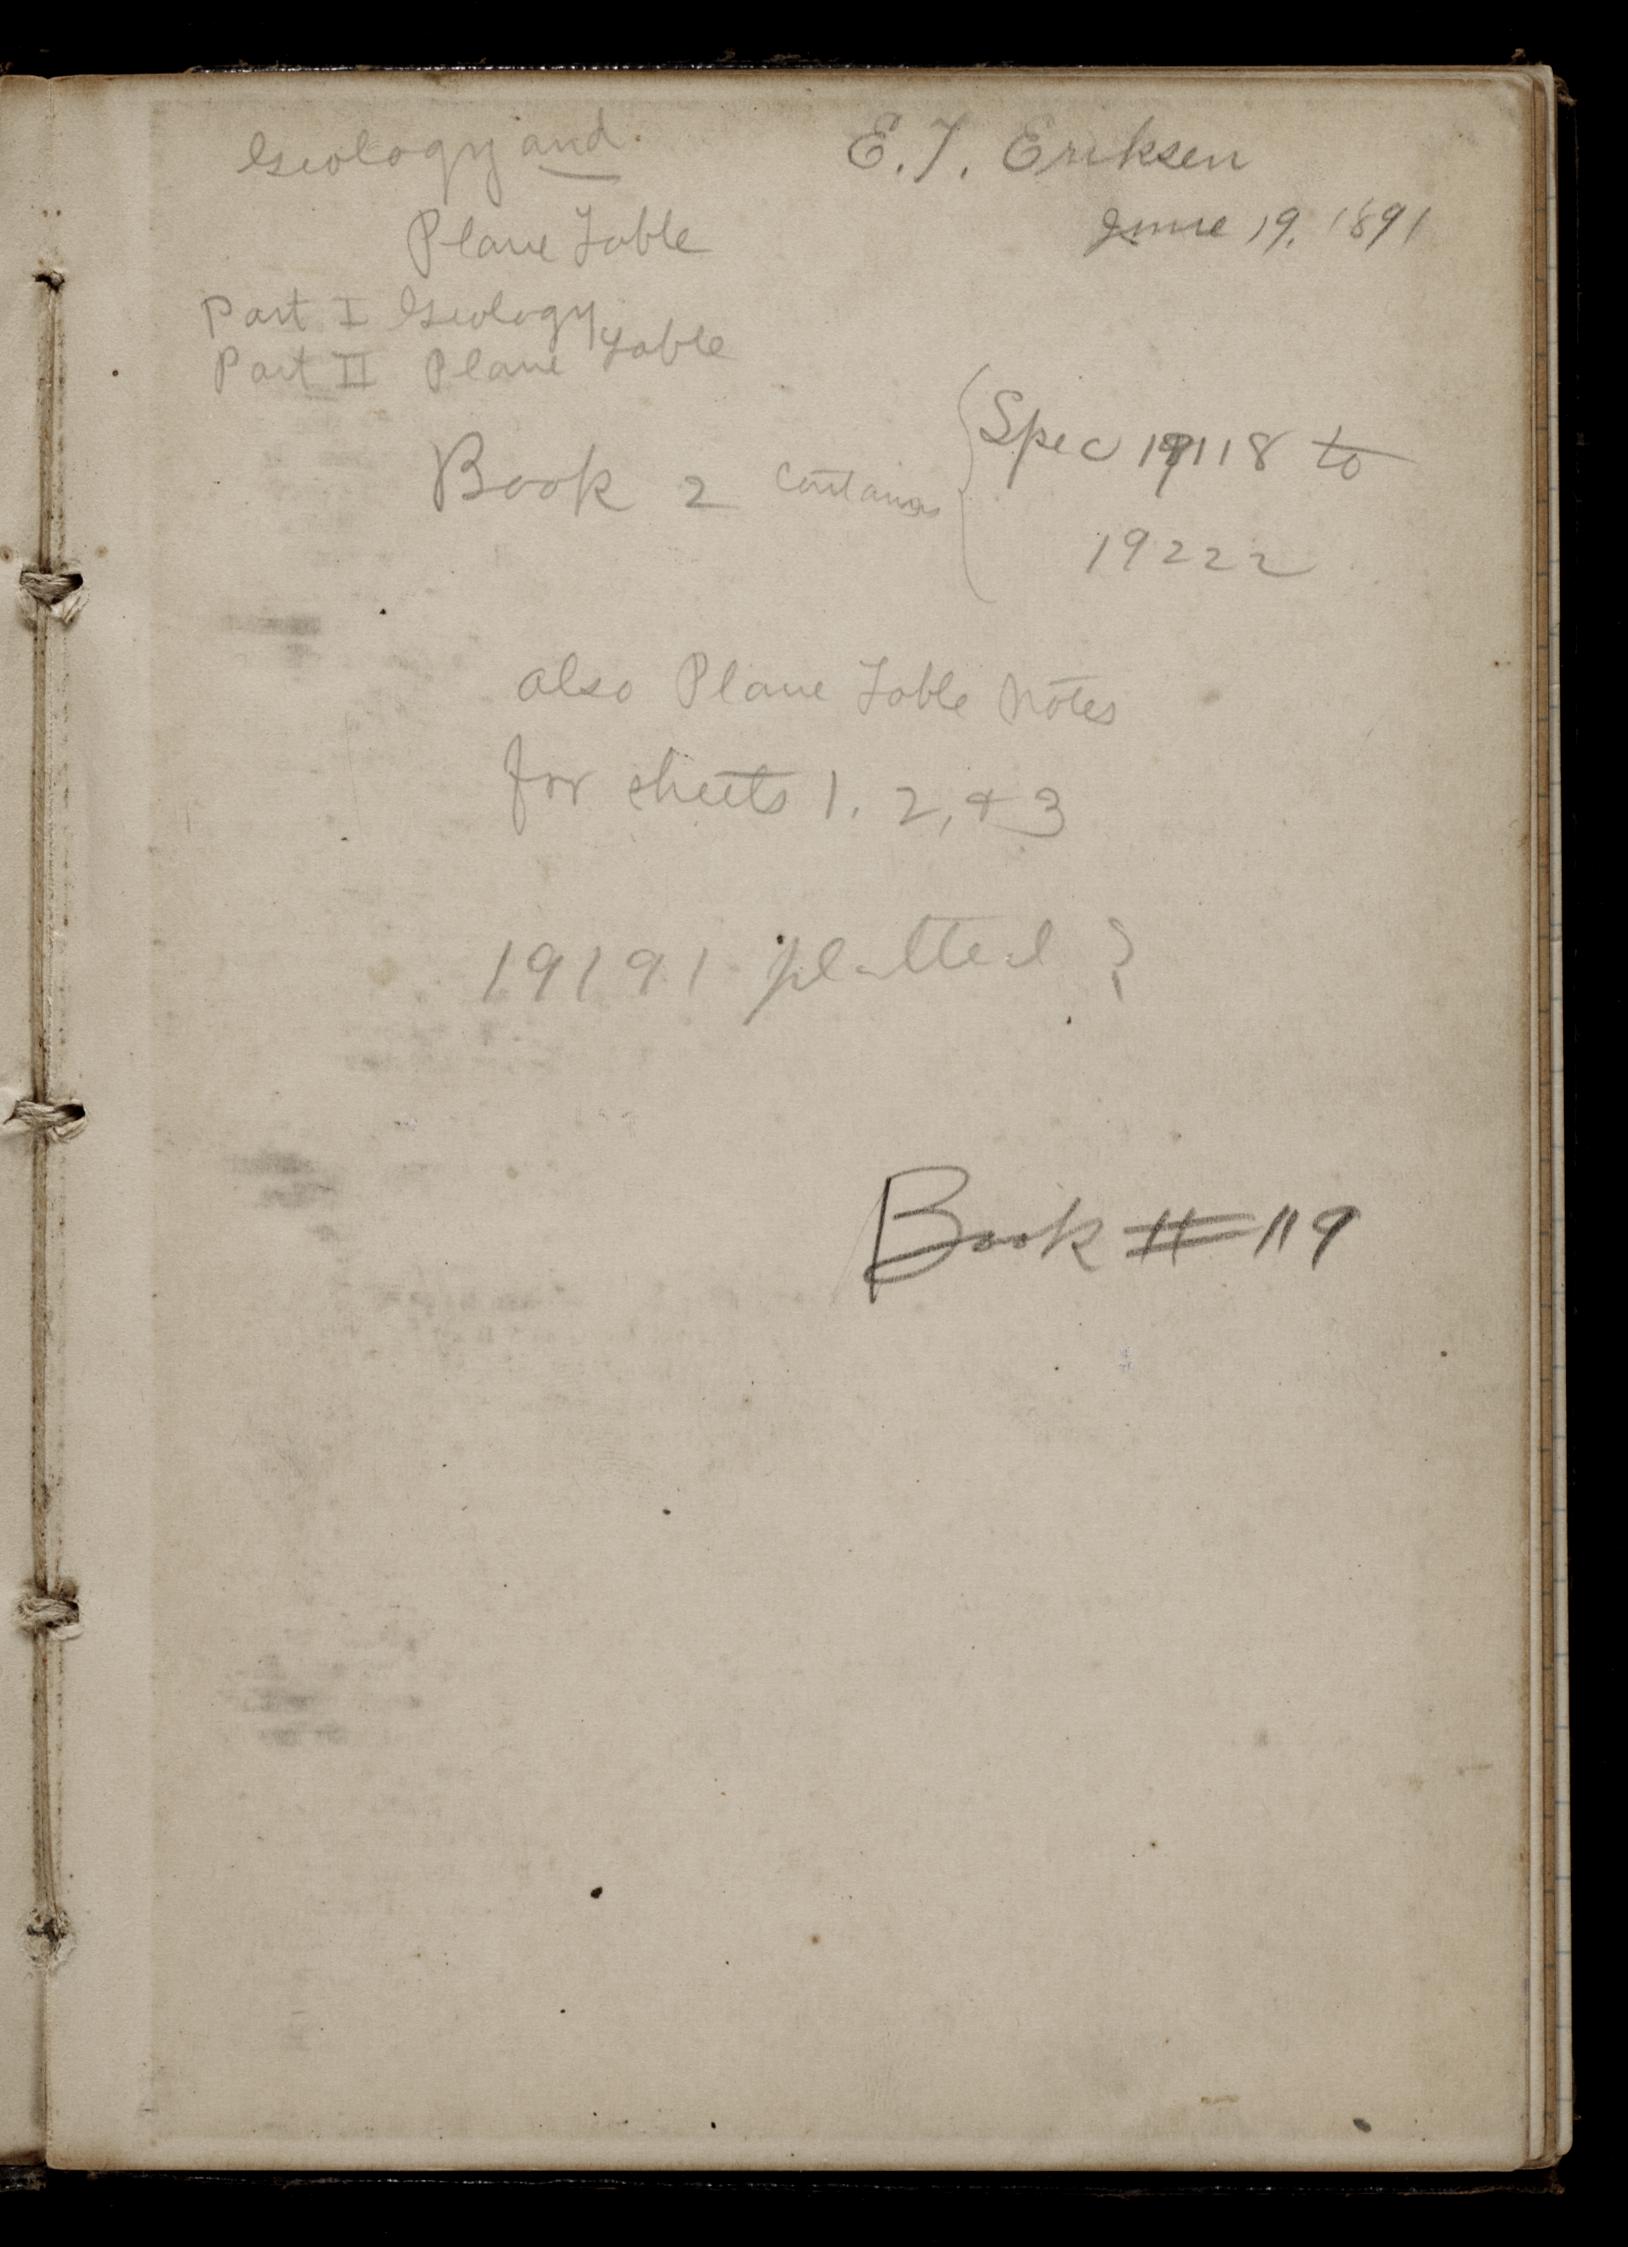 Geology and
Plane Table
Part I Geology
Part II Plane Table
E. T. Eriksen
June 19, 1891
Book 2 contains { Spec 19118 to
19222
also Plane Table Notes
for sheets 1, 2, & 3
19191 platted ?
Book # 119